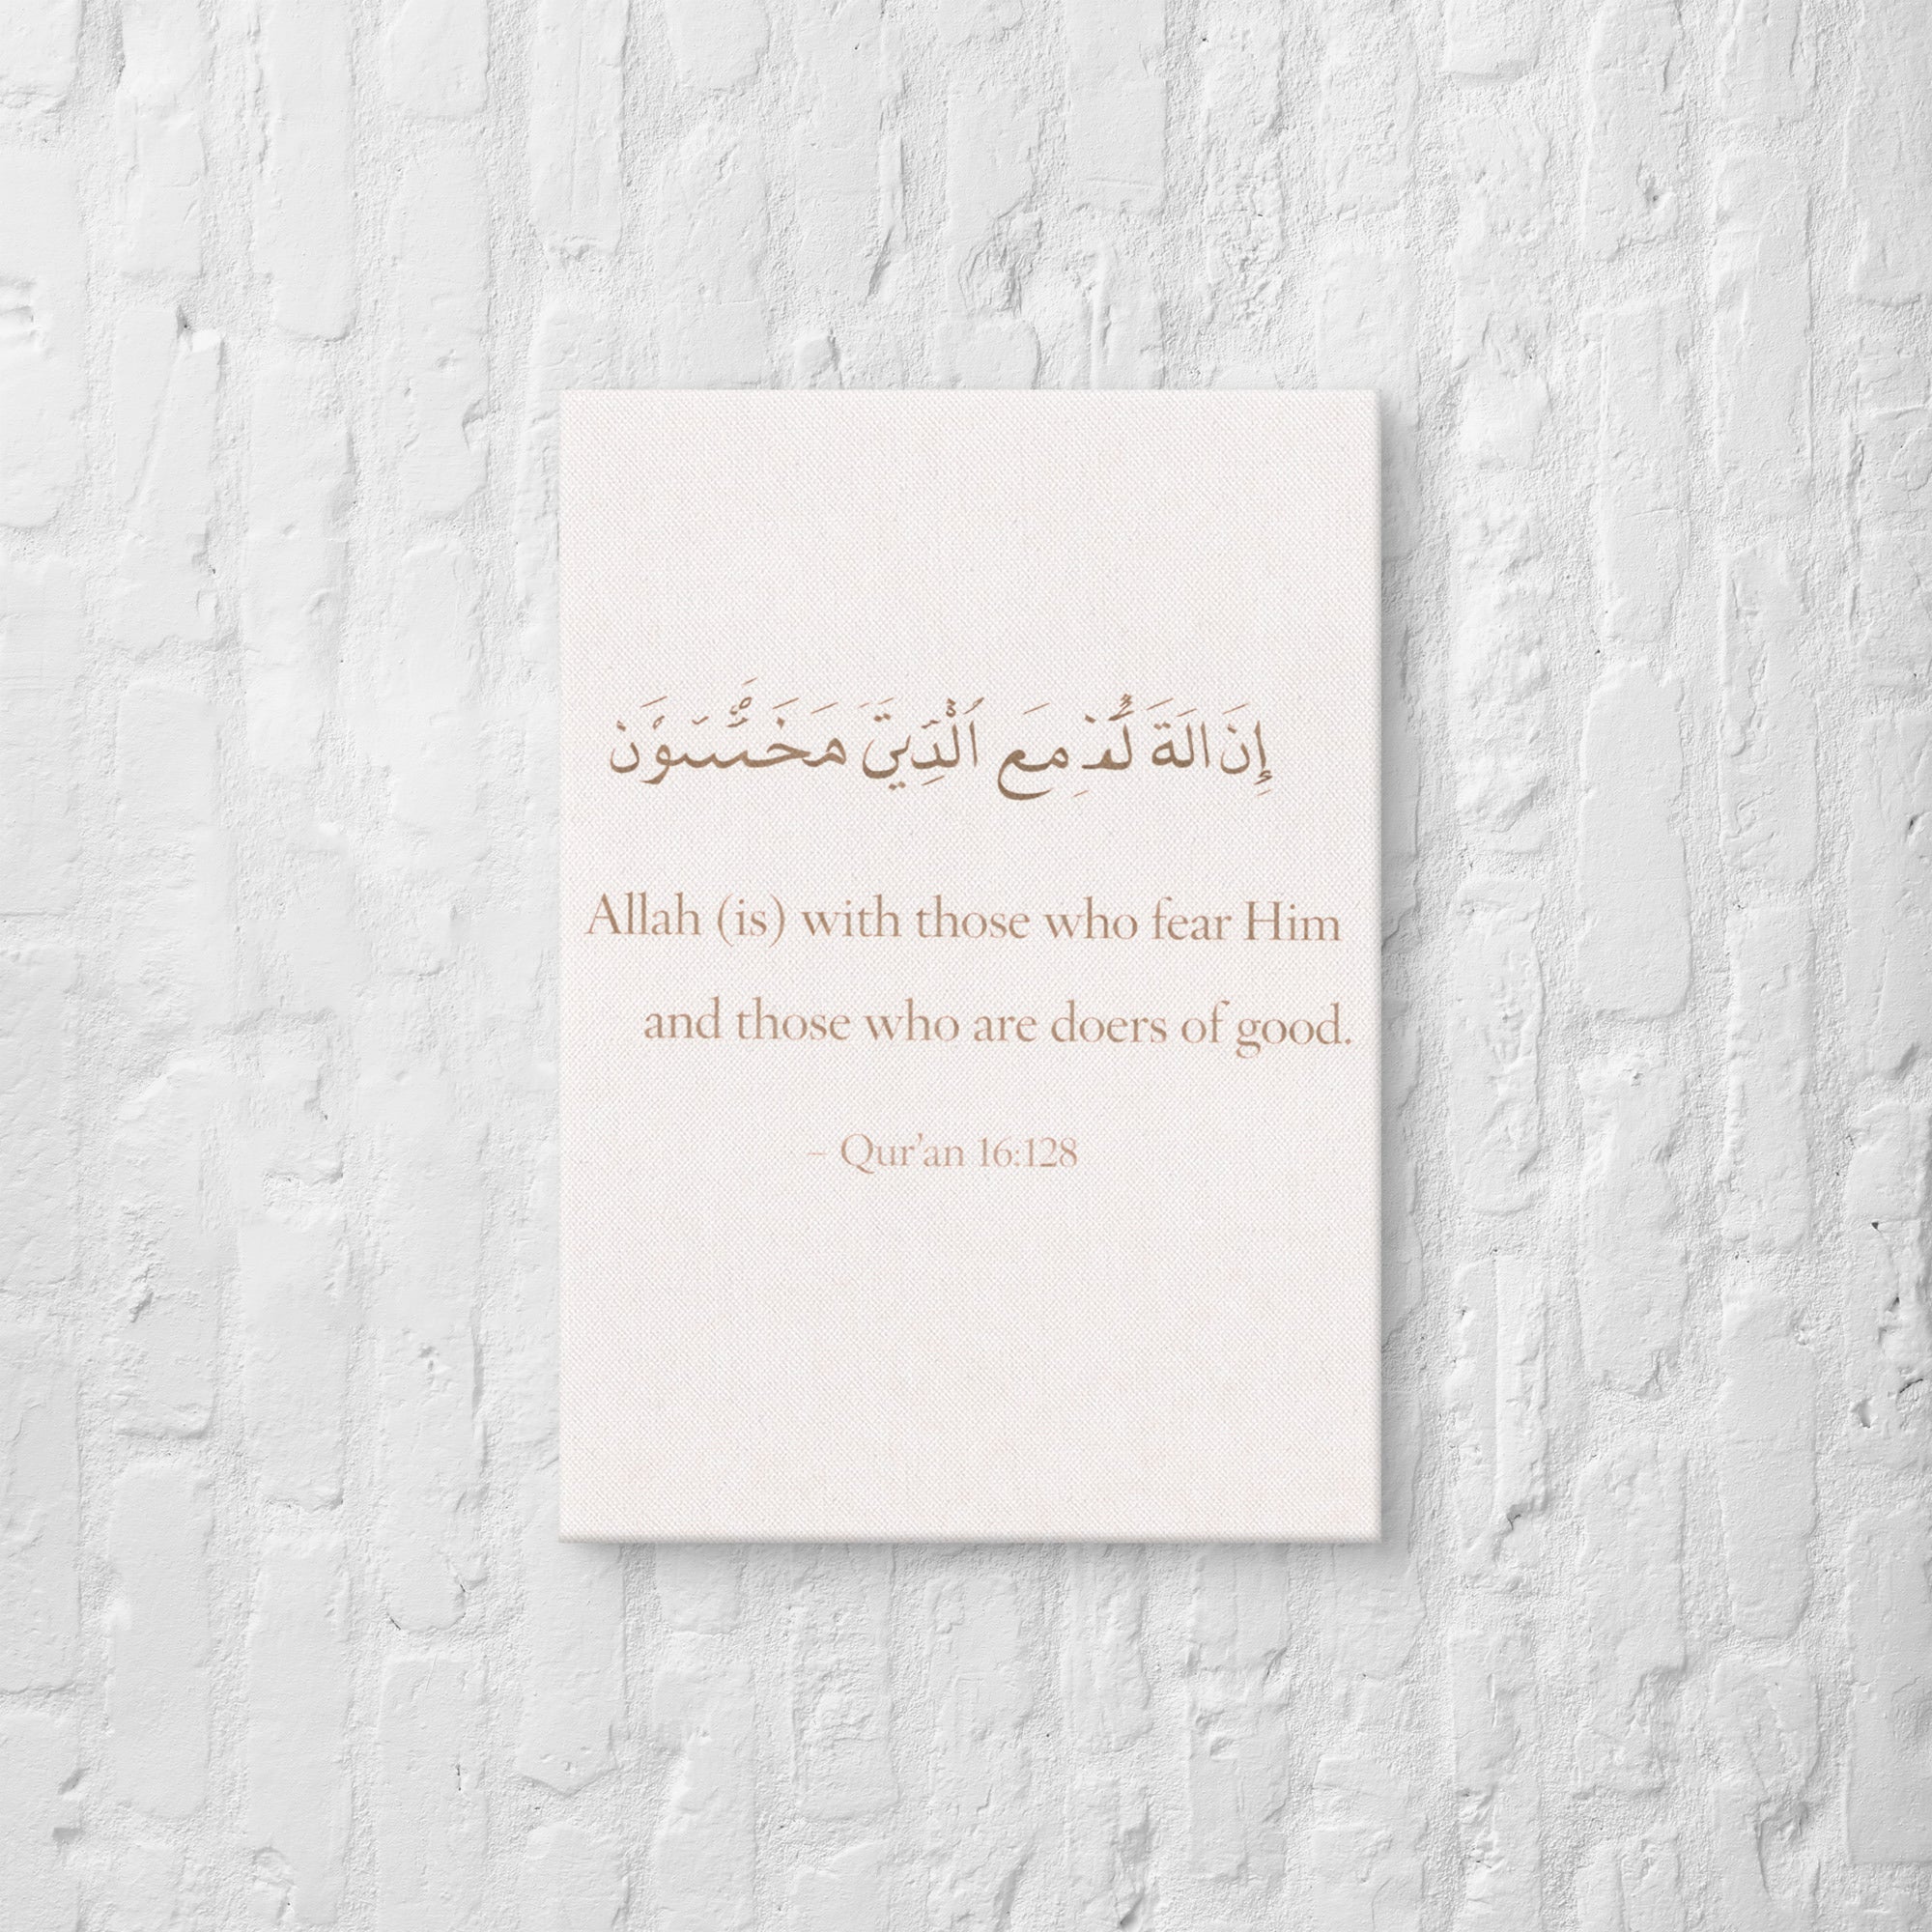 إِنَ الَةَ لَّذ مِـَع ٱلْذِيَتَ هَخَسُّسَوْنَ
Allah (is) with those who fear Him
and those who are doers of good.
– Qur'an 16:128